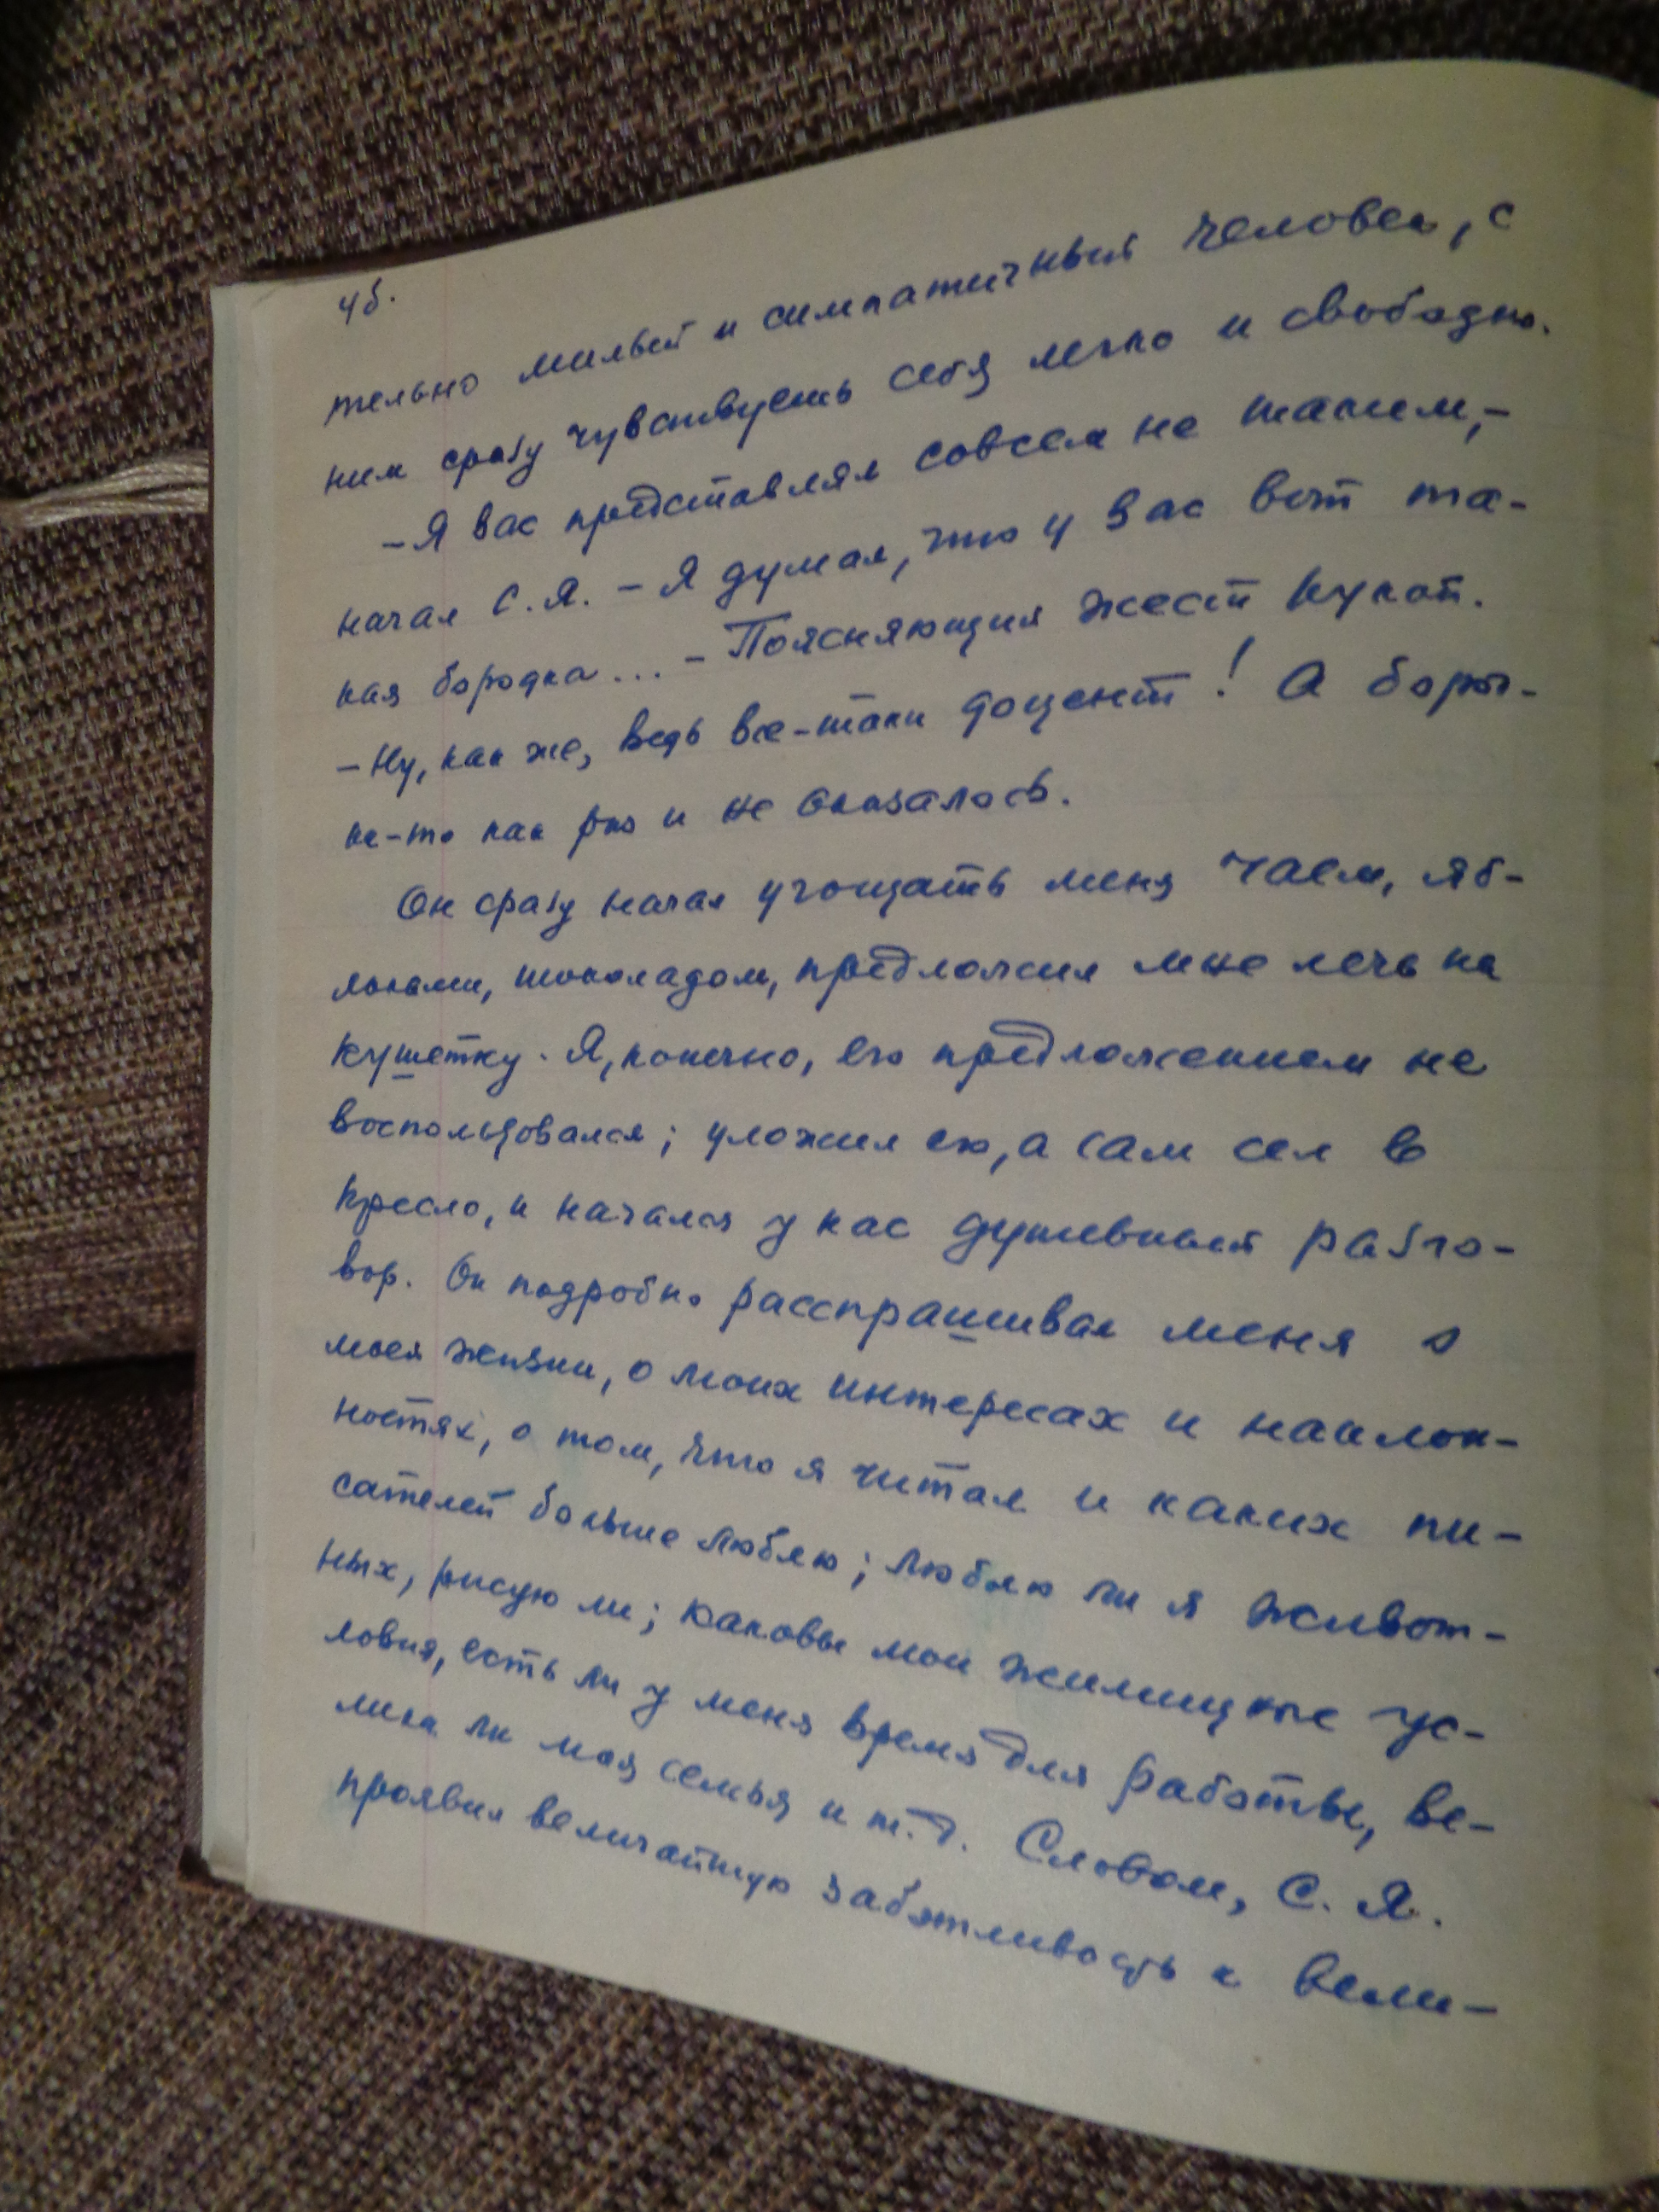 46.
тельно милый и симпатичный человек, с
ним сразу чувствуешь себя легко и свободно.
– Я вас представлял совсем не таким,–
начал С.Я. – Я думал, что у вас вот та-
кая бородка... – Поясняющий жест рукой.
– Ну, как же, ведь все-таки доцент! А боро-
ды-то как раз и не оказалось.
Он сразу начал угощать меня чаем, яб-
локами, шоколадом, предложил мне лечь на
кушетку. Я, конечно, его предложением не
воспользовался; уложил его, а сам сел в
кресло, и начался у нас душевный разго-
вор. Он подробно расспрашивал меня о
моей жизни, о моих интересах и наклон-
ностях, о том, что я читал и каких пи-
сателей больше люблю; люблю ли я живот-
ных, рисую ли; каковы мои жилищные ус-
ловия, есть ли у меня время для работы, ве-
лика ли моя семья и т.д. Словом, С. Я.
проявил величайшую заботливость к вели-